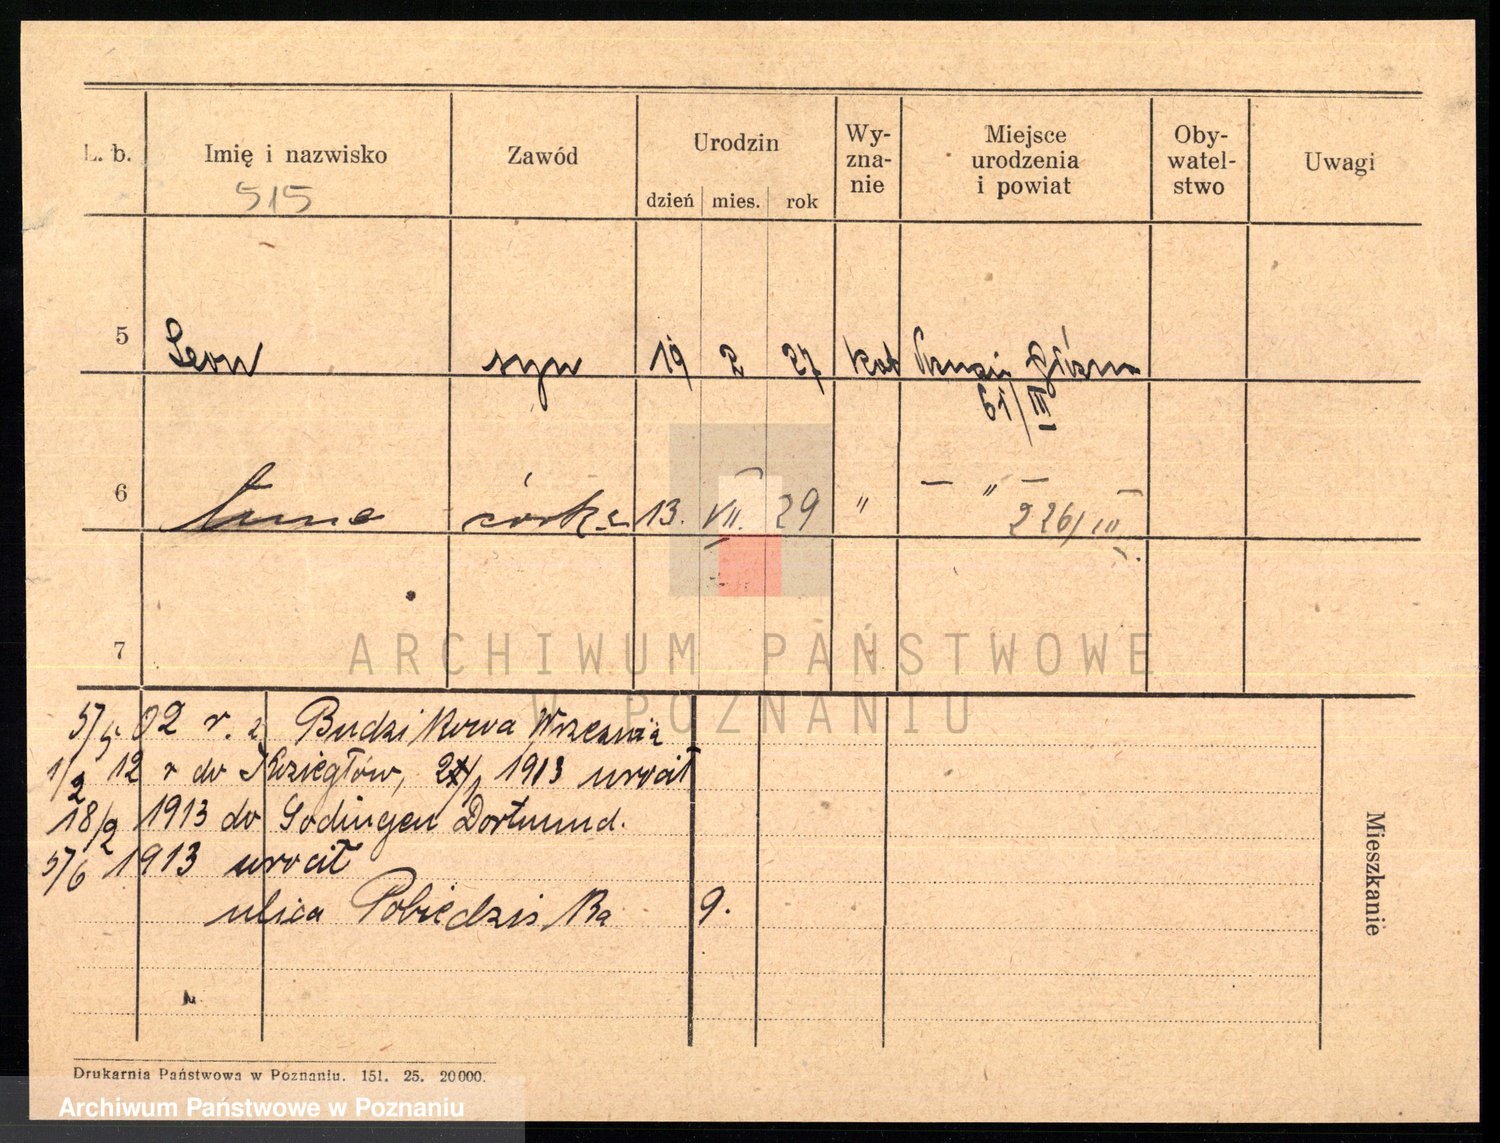 L. b. Imię i nazwisko Zawód Urodzin dzień mies. rok Wy- zna- nie Miejsce urodzenia i powiat Oby- watel- stwo Uwagi
515
5 Leon syn 19 2 27 kat Główna
61/III
6 córka 13. VII. 29 " — " —
226/III
7
ARCHIWUM PAŃSTWOWE
W POZNANIU
5/5 02 r. z Budzikowa Września
1/2 12 r do Koziegłów, 1913 wrócił
18/2 1913 do Sodingen Dortmund.
5/6 1913 wrócił
ulica Pobiedziska 9.
Mieszkanie
Drukarnia Państwowa w Poznaniu. 151. 25. 20000.
Archiwum Państwowe w Poznaniu